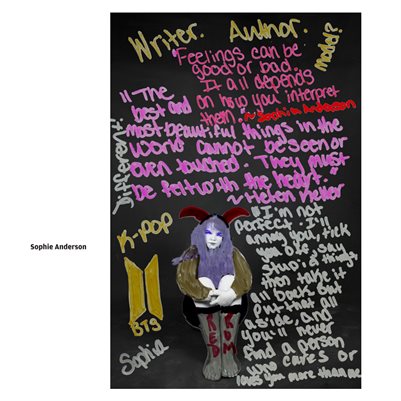 Writer. Author.
Moody?
"Feelings can be
good or bad.
It all depends
on how you interpret
them. ~Sophia Anderson
"The
best and
most beautiful things in the
world cannot be seen or
even touched. They must
be felt with the heart."
~Helen Keller
Different.
K-pop
BTS
Sophia
"I'm not
perfect. I'll
annoy you, tick
you off, say
stupid things,
then take it
all back but
put that all
aside, and
you'll never
find a person
who cares or
loves you more than me.
RED
RUM
Sophie Anderson